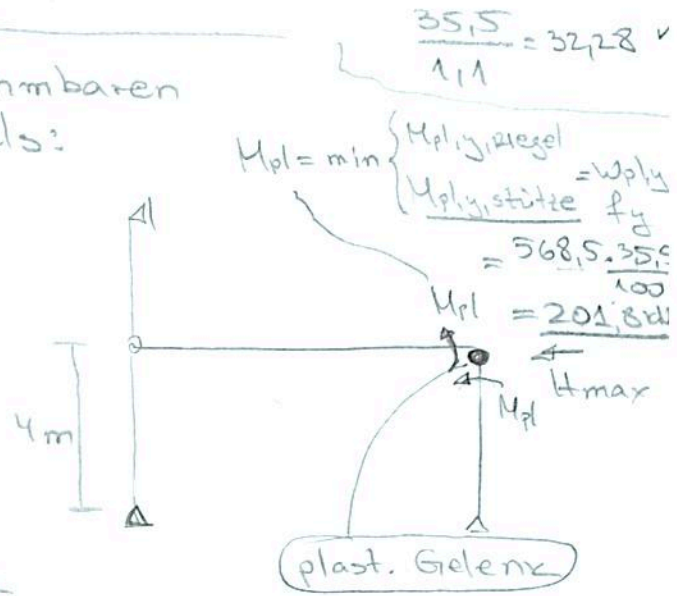 35,5 / 1,1 = 32,28 ✓
mbaren
ls:
Mpl = min { Mpl,y,Riegel
Mpl,y,stütze = Wpl,y fy
= 568,5 · 35,5 / 100
= 201,8 k
Mpl
Hmax
Mpl
4 m
plast. Gelenk